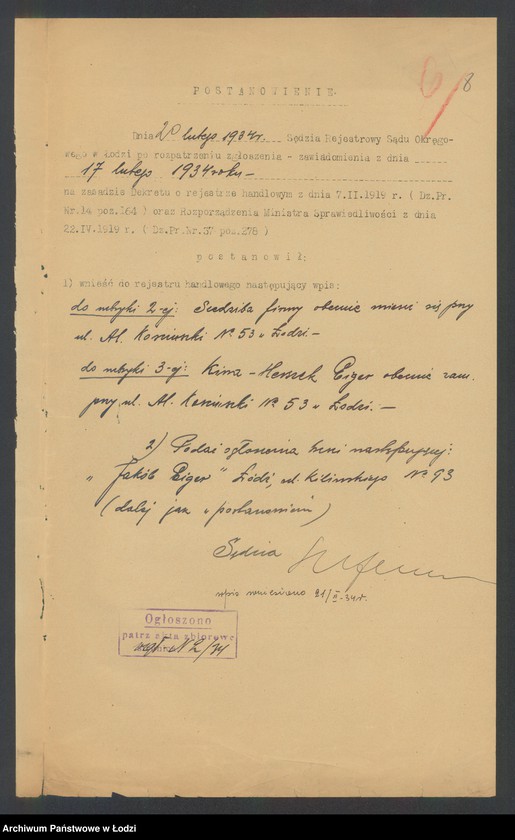 6/8
POSTANOWIENIE.
Dnia 20 lutego 1934r. Sędzia Rejestrowy Sądu Okręgo-
wego w Łodzi po rozpatrzeniu zgłoszenia - zawiadomienia z dnia
17 lutego 1934 roku -
na zasadzie Dekretu o rejestrze handlowym z dnia 7.II.1919 r. ( Dz.Pr.
Nr.14 poz.164 ) oraz Rozporządzenia Ministra Sprawiedliwości z dnia
22.IV.1919 r. ( Dz.Pr.Nr.37 poz.278 )
postanowił:
1) wnieść do rejestru handlowego następujący wpis:
do rubryki 2-ej: Siedziba firmy obecnie mieści się przy
ul. Al. Kościuszki № 53 w Łodzi. -
do rubryki 3-ej: Hersek Eiger obecnie zam.
przy ul. Al. Kościuszki № 53 w Łodzi. -
2) Podać ogłoszenie treści następującej:
"Jakób Eiger" Łódź, ul. Kilińskiego № 93
(dalej jak w postanowieniu)
Sędzia
wpis umieszczono 21/II-34r.
Ogłoszono
patrz akta zbiorowe
№ 2/34
Archiwum Państwowe w Łodzi